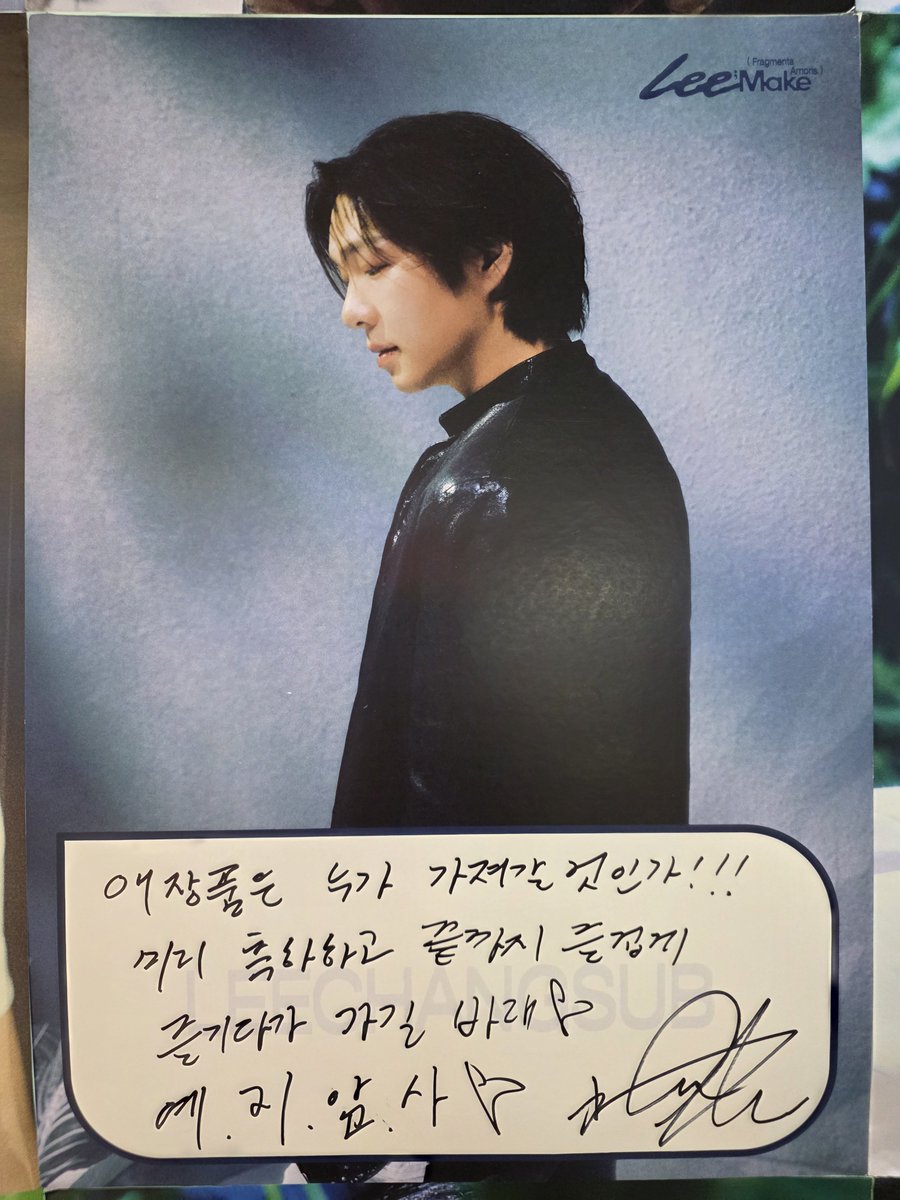 ( Fragments
Amoris )
Lee:Make
애장품은 누가 가져갈 것인가!!!
미리 축하하고 끝까지 즐겁게
즐기다가 가길 바래♡
예.리.앞.사♡
LEECHANGSUB